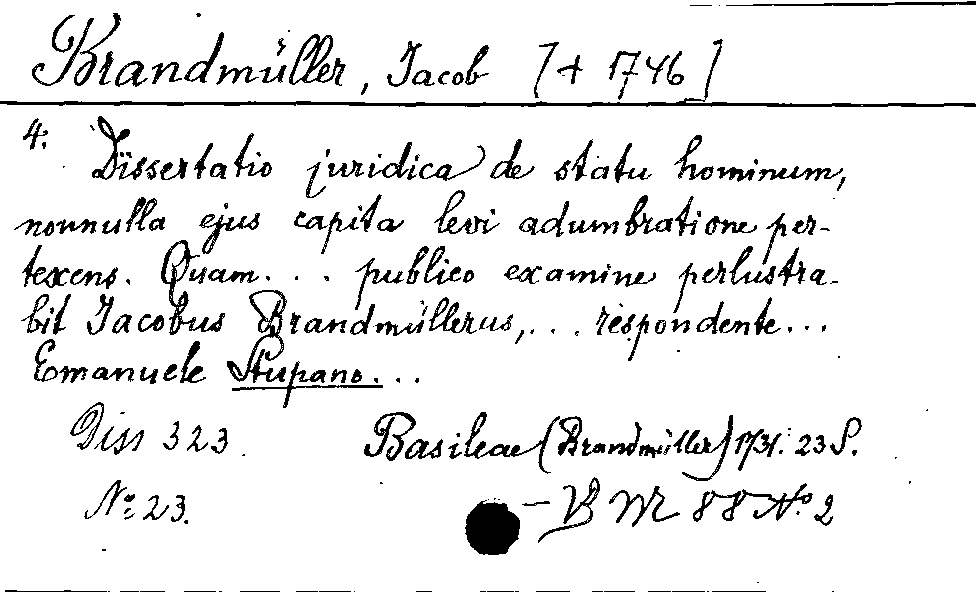 Brandmüller, Jacob [+ 1746]
4.
Dissertatio juridica de statu hominum,
nonnulla ejus capita levi adumbratione per-
texens. Quam... publico examine perlustra-
bit Jacobus Brandmüllerus,... respondente...
Emanuele Stupano...
Diss 323
Basileae (Brandmüller) 1731. 23 S.
No. 23.
– VB M 88 No. 2